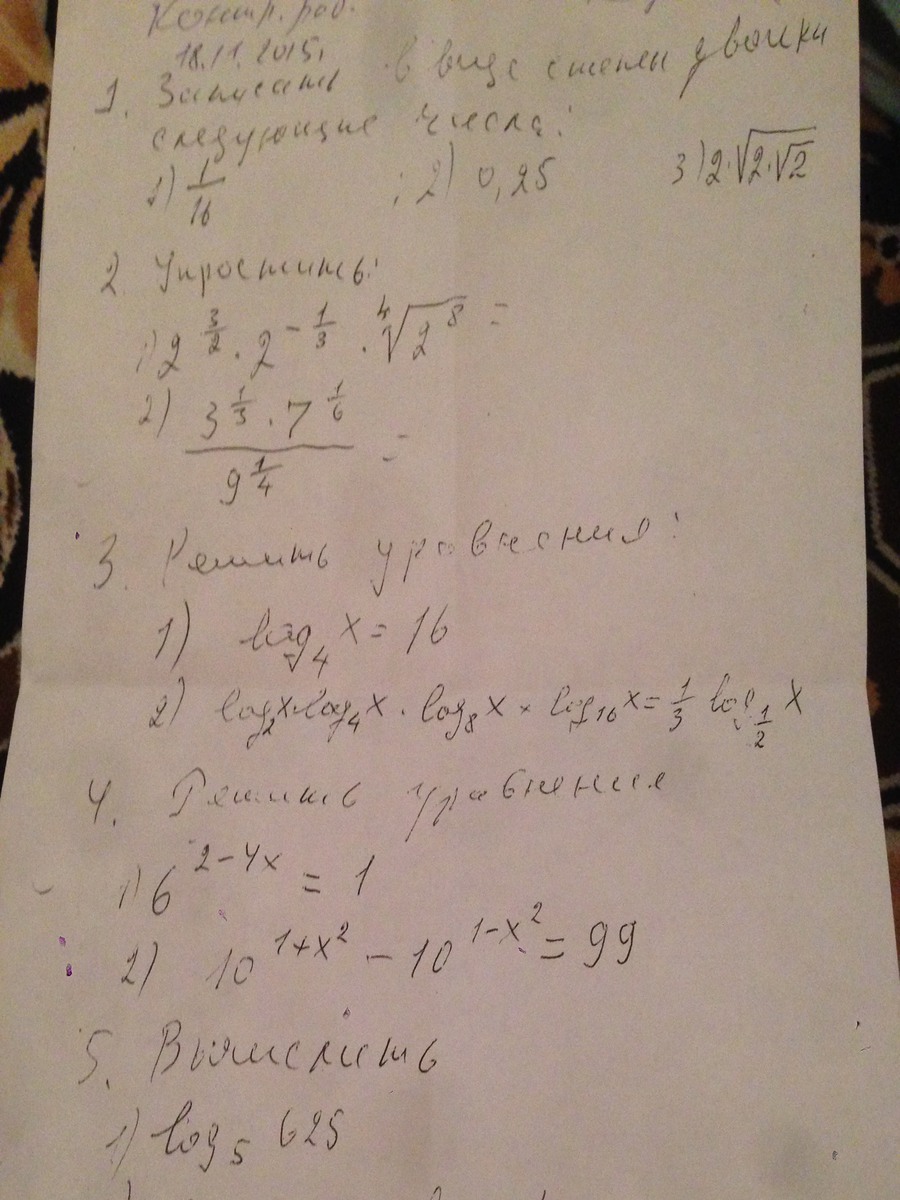 Контр. раб.
18.11.2015г
1. Записать в виде степен двойки
следующие числа:
1) 1/16 ; 2) 0,25 3) 2·√(2·√2)
2. Упростить:
1) 2^(3/2) · 2^(-1/3) · ⁴√(2^8) =
2) (3^(1/3) · 7^(1/6)) / 9^(1/4) =
3. Решить уравнения:
1) log₄ x = 16
2) log₂x·log₄x · log₈x · log₁₆x = 1/3 log_(1/2) x
4. Решить уравнения
1) 6^(2-4x) = 1
2) 10^(1+x²) - 10^(1-x²) = 99
5. Вычислить
1) log₅ 625